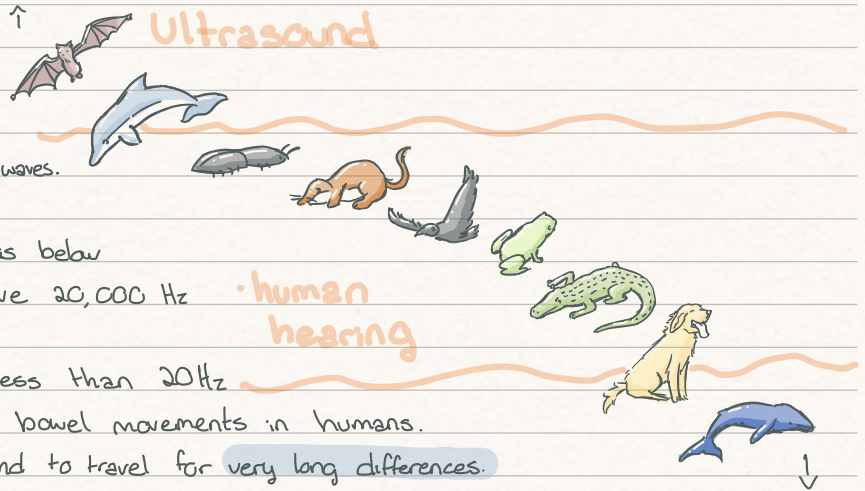 Ultrasound
waves.
is below
ve 20,000 Hz
·human
hearing
ess than 20Hz
bowel movements in humans.
nd to travel for very long differences.